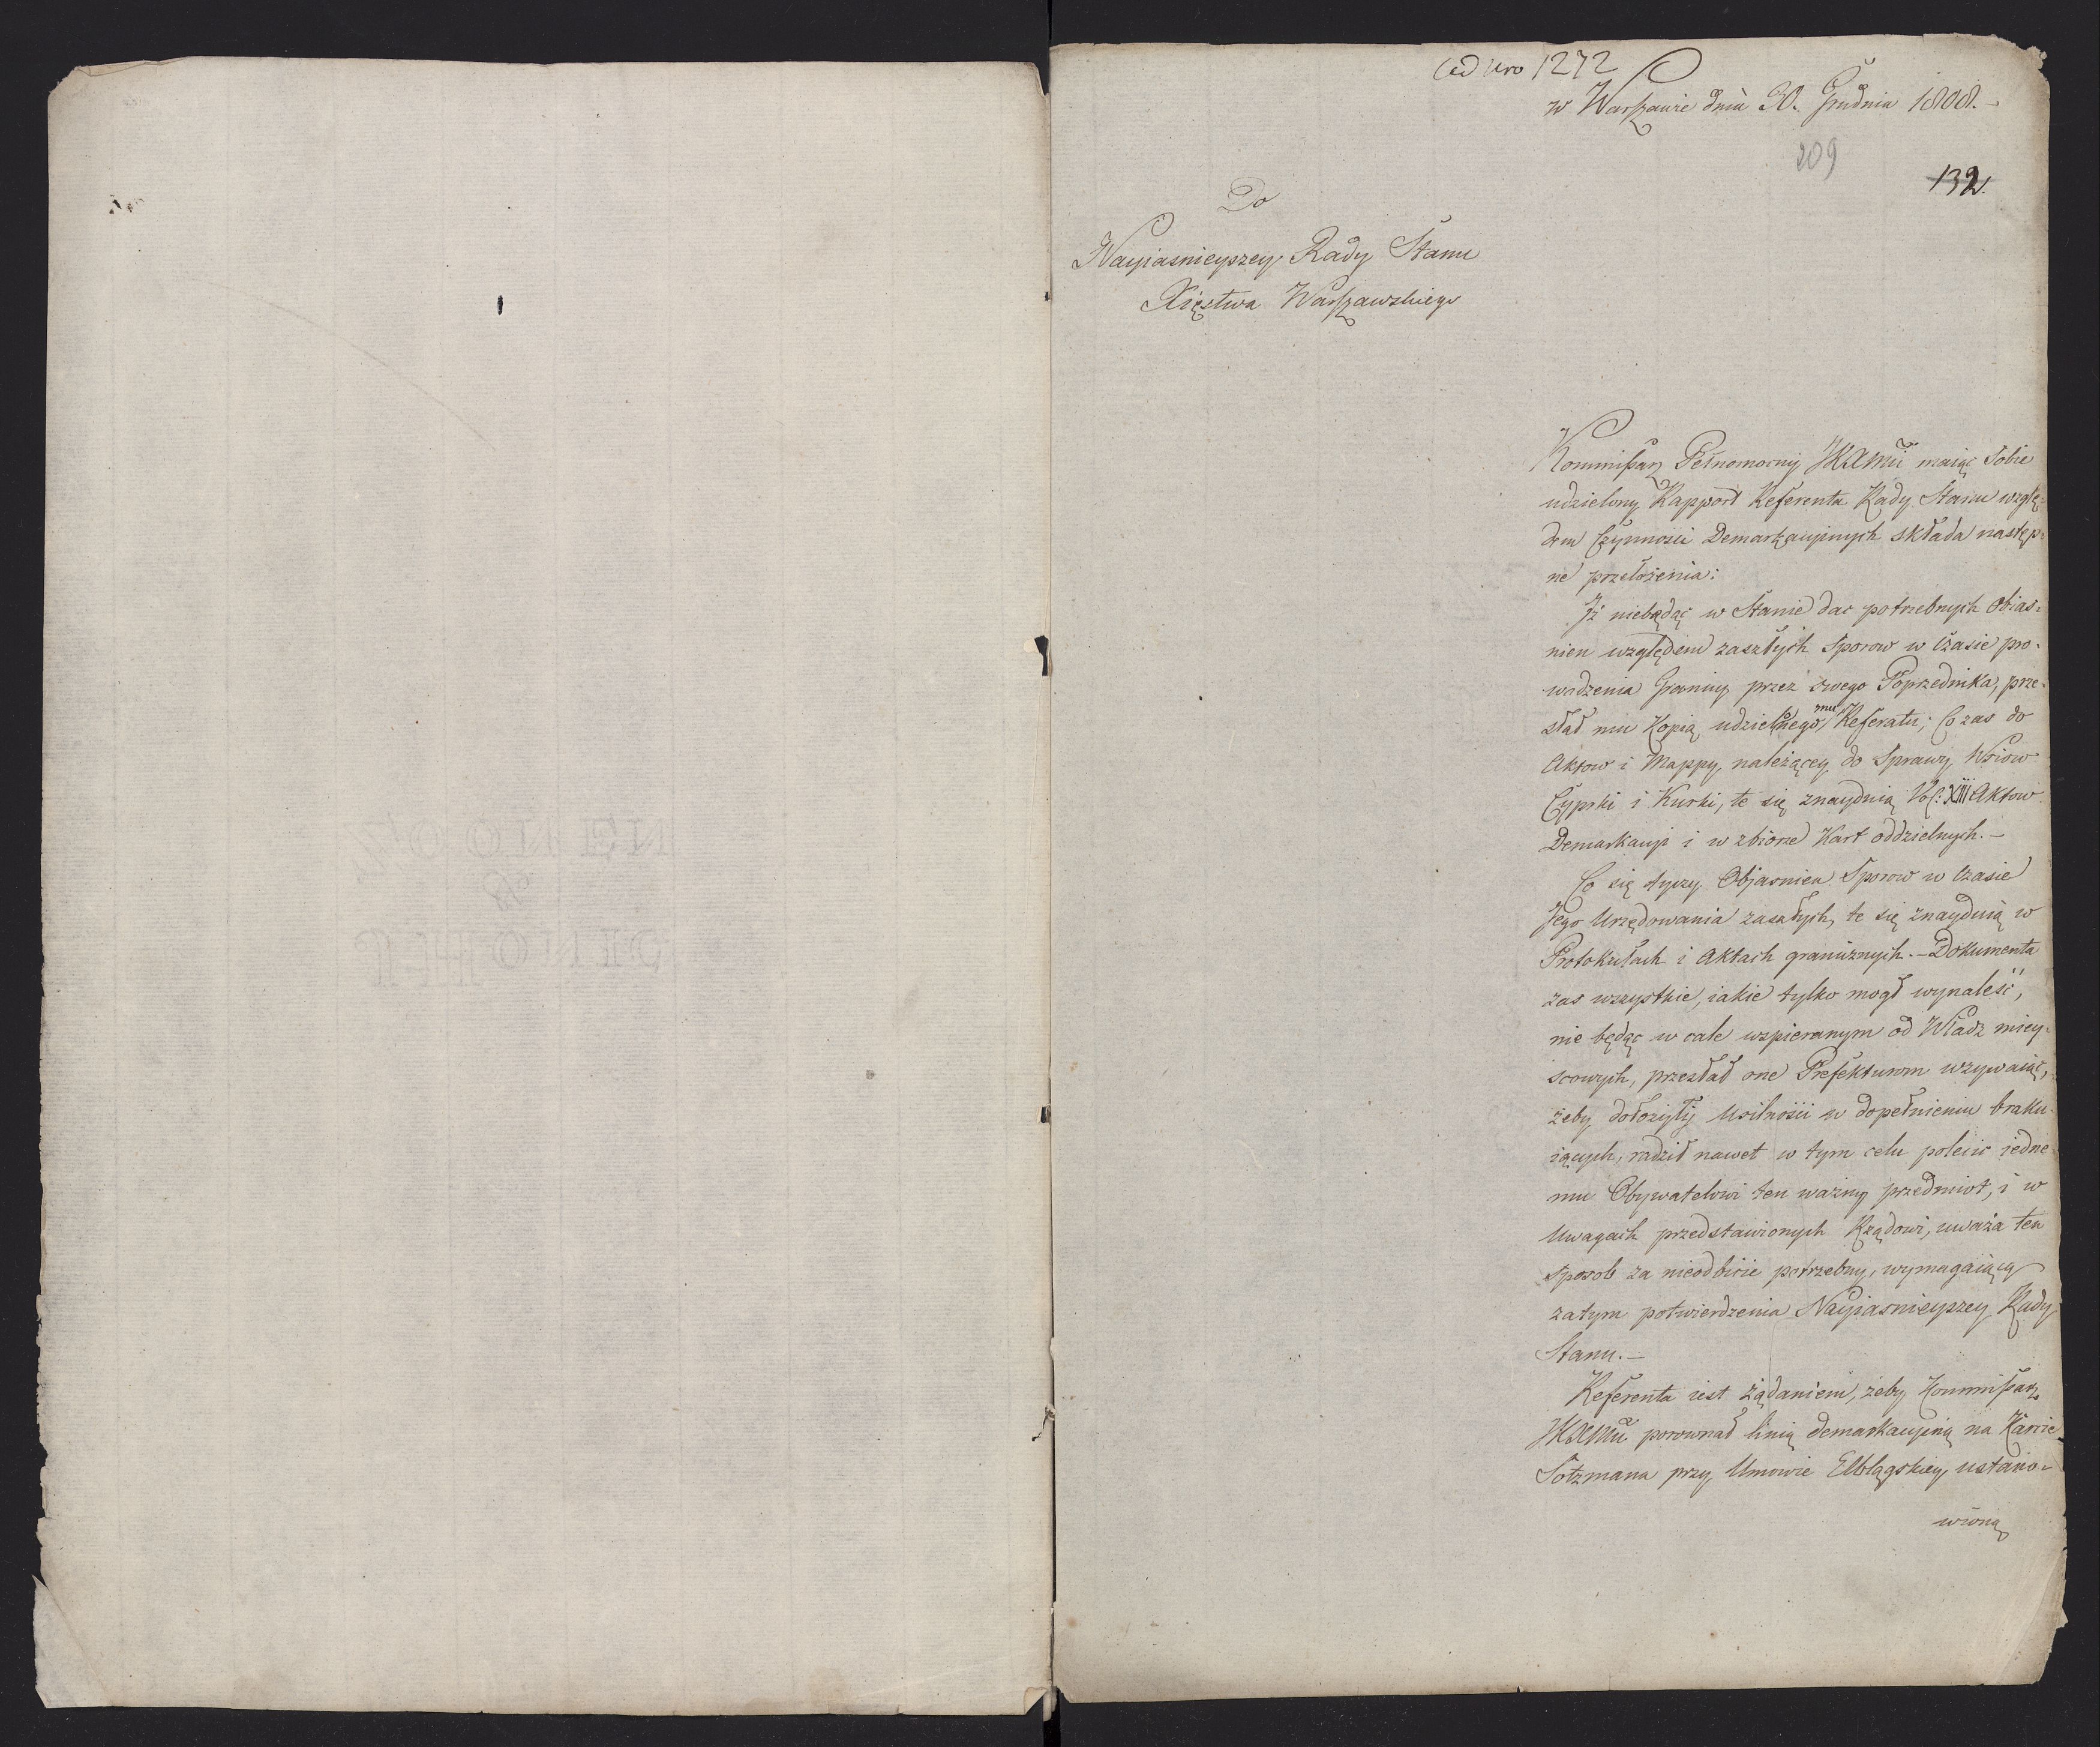 ad Nro 1272
w Warszawie dnia 30. Grudnia 1808.
209
132.
Do
Nayiasnieyszey Rady Stanu
Xięstwa Warszawskiego
Kommissarz Pełnomocny JKXMci maiąc sobie
udzielony Rapport Referenta Rady Stanu wzglę-
dem Czynnosci Demarkacyinych składa następ-
ne przełożenia:
Jż niebędąc w Stanie dac potrzebnych Obias-
nien względem zaszłych Sporow w Czasie pro-
wadzenia Granicy przez swego Poprzednika, prze-
słał mu Kopią udzielnego mu Referatu; Co zas do
Aktow i Mappy, należącey do Sprawy Wsiow
Cyprki i Kurki, te się znayduią Vol: XIII Aktow
Demarkacyi i w zbiorze Kart oddzielnych. —
Co się tyczy Objasnien Sporow w Czasie
Jego Urzędowania zaszłych, te się znayduią w
Protokułach i Aktach granicznych. — Dokumenta
zas wszystkie, iakie tylko mogł wynaleść,
nie będąc w cale wspieranym od Władz miey-
scowych, przesłał one Prefekturom wzywaiąc,
żeby dołożyły Usilności w dopełnieniu braku-
iących, radził nawet w tym celu polecic iedne-
mu Obywatelowi ten ważny przedmiot, i w
Uwagach przedstawionych Rządowi, uważa ten
Sposob za nieodbicie potrzebny, wymagaiący
zatym potwierdzenia Nayiasnieyszey Rady
Stanu. —
Referenta iest żądaniem, żeby Kommissarz
JKXMci porownał linią demarkacyiną na Karcie
Sotzmana przy Umowie Elblągskiey ustano-
wioną